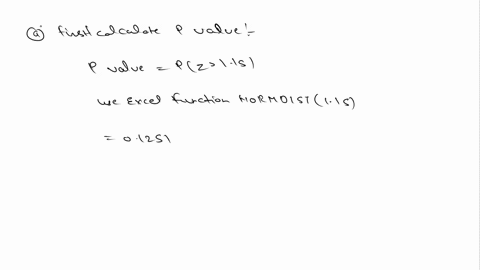 ⓐ First calculate P value :-
P value = P(Z>1.15)
use Excel function NORMDIST(1.15)
= 0.1251